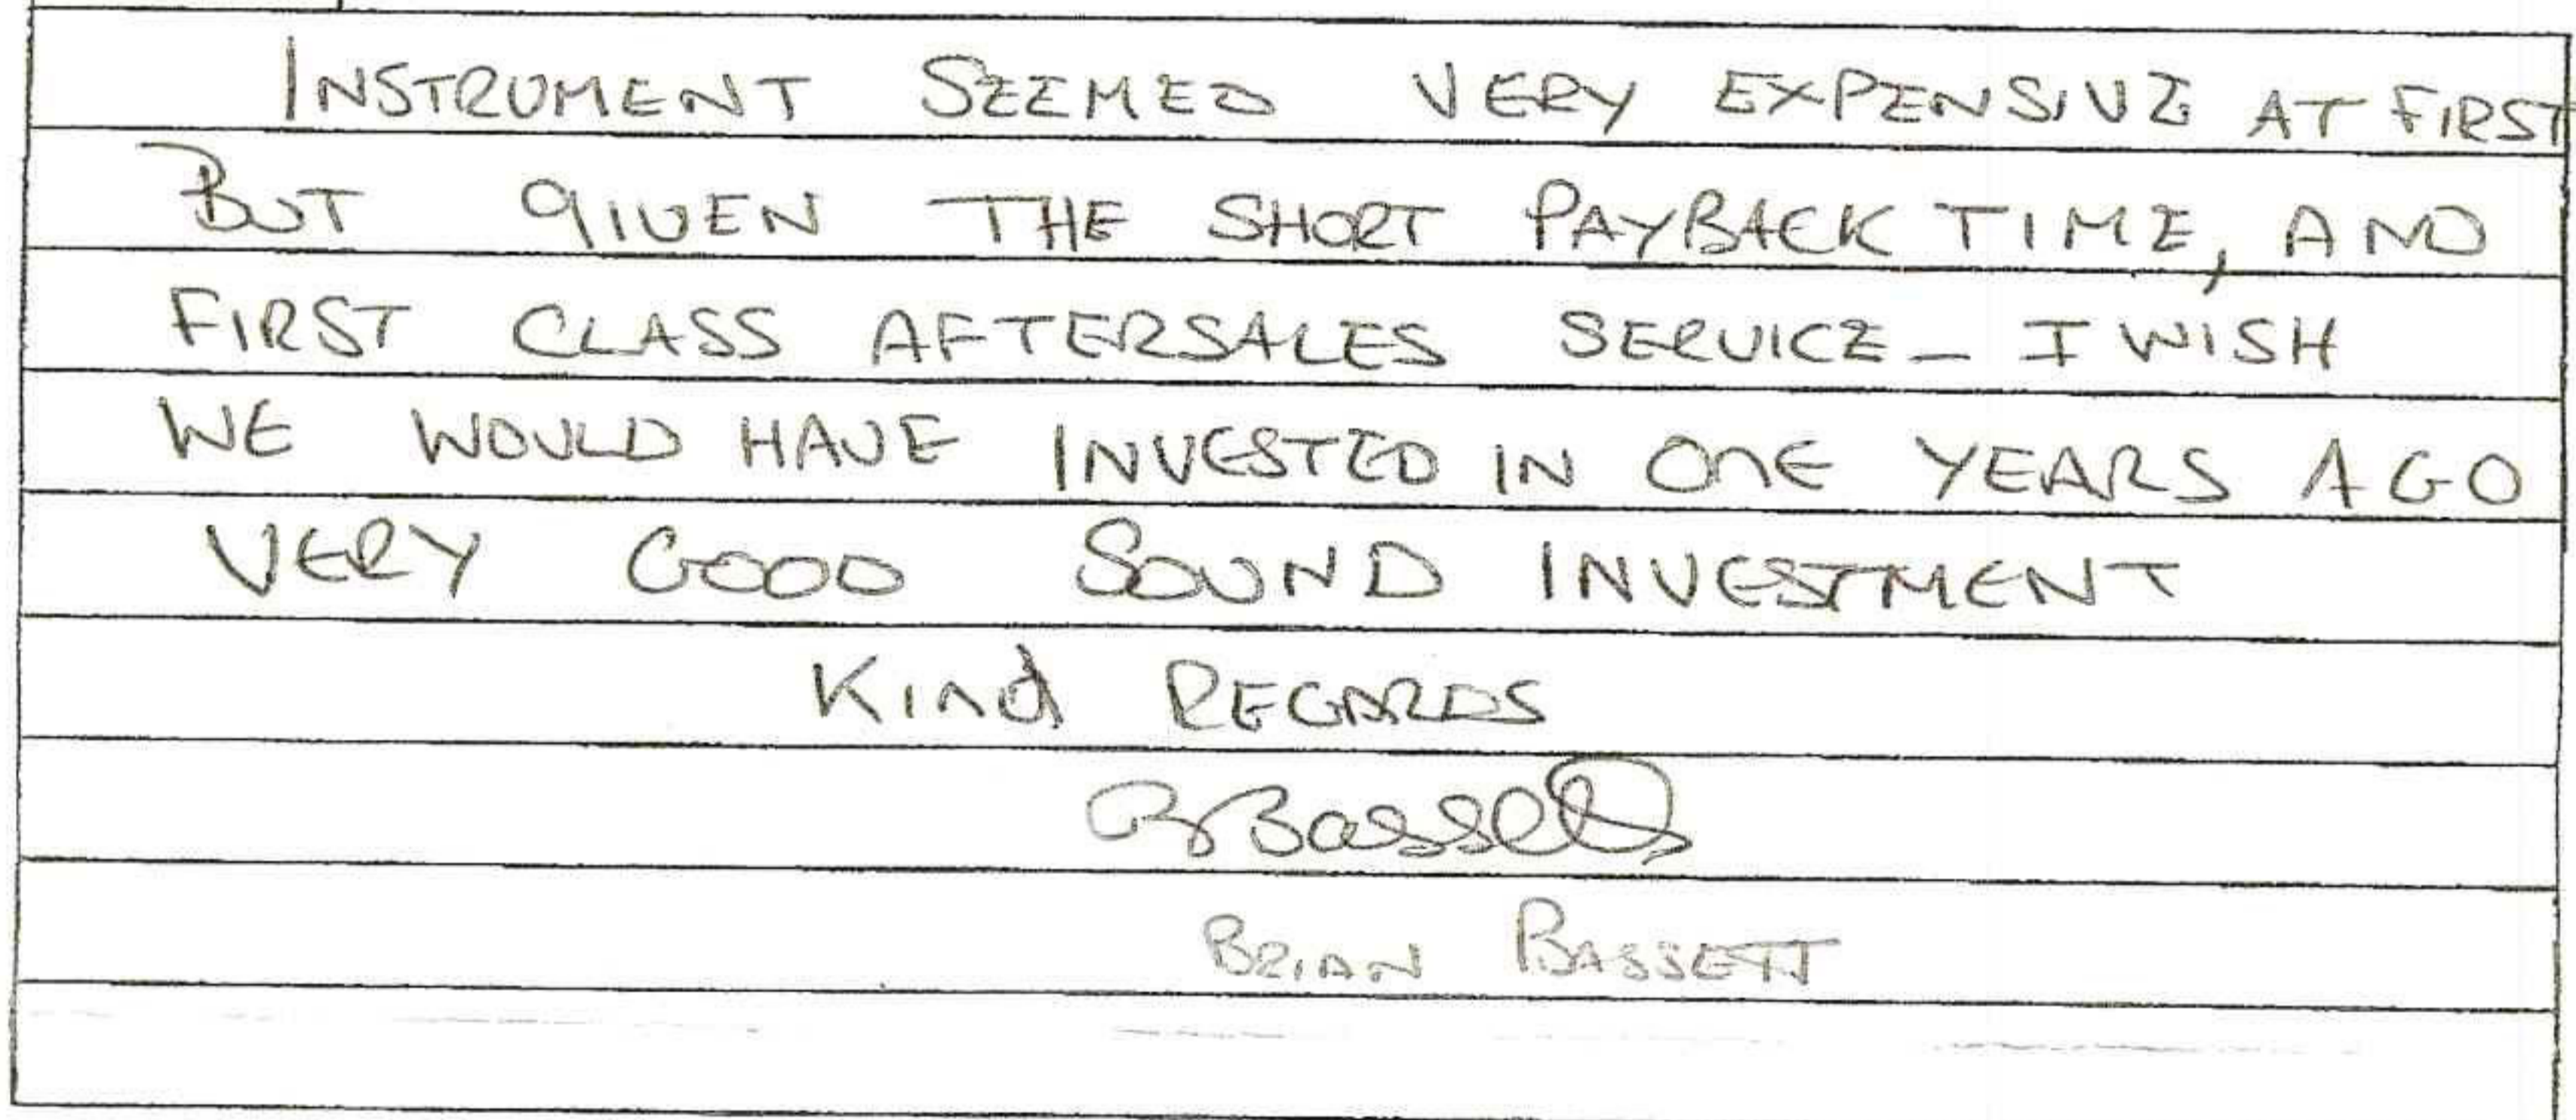 INSTRUMENT SEEMED VERY EXPENSIVE AT FIRST
BUT GIVEN THE SHORT PAYBACK TIME, AND
FIRST CLASS AFTERSALES SERVICE - I WISH
WE WOULD HAVE INVESTED IN ONE YEARS AGO
VERY GOOD SOUND INVESTMENT
Kind REGARDS
B Bassett
BRIAN BASSETT